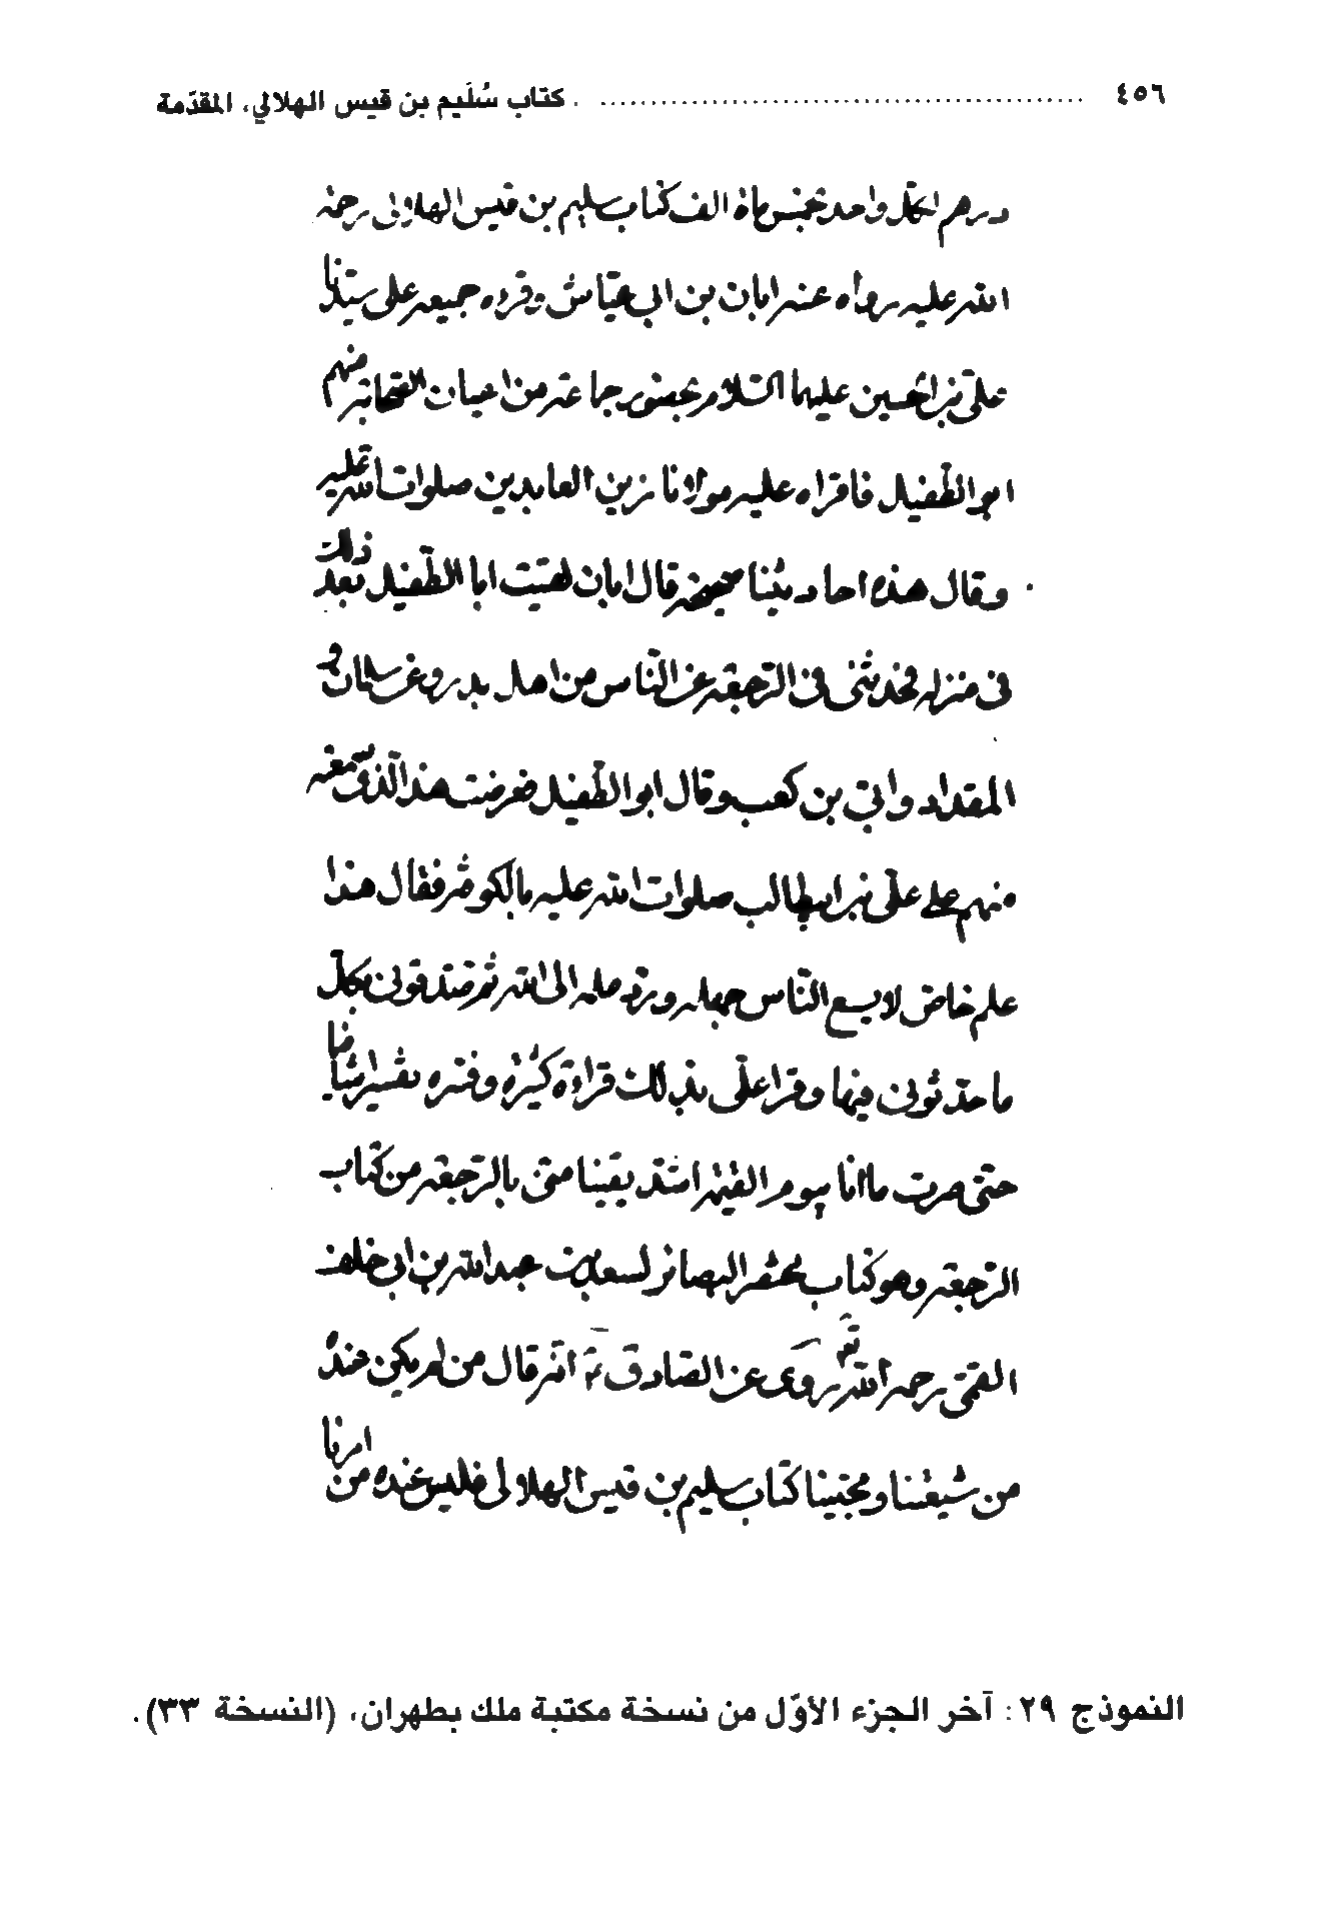 ٤٥٦ ........ كتاب سُلَيم بن قيس الهلالي، المقدّمة
درهم لكل واحد بخمس مائة الف كتاب سليم بن قيس الهلالي رحمة
الله عليه رواه عنه ابان بن ابي عيّاش وقرءه جميعه على سيّدنا
علي بن الحسين عليهما السّلام بحضور جماعة من اعيان الصّحابة منهم
ابو الطّفيل فاقراه عليه مولانا زين العابدين صلوات الله عليه
وقال هذه احاديثنا صحيحة قال ابان لقيت ابا الطّفيل بعد ذلك
في منزله فحدثنى في الرّجعة عن النّاس من اهل بدر وعن سلمان و
المقداد وابيّ بن كعب وقال ابو الطّفيل فعرضت هذا الّذى سمعته
منهم على علّي بن ابيطالب صلوات الله عليه بالكوفة فقال هذا
علم خاصّ لا يسع النّاس جهله وردّ علمه الى الله ثم صدّقونى بكلّ
ما حدّثونى فيها وقرا علّى بذلك قراءة كثيرة وفسره تفسيرا شافيا
حتى صرت ما انا بيوم القيمة اشد يقينا منّى بالرّجعة من كتاب
الرّجعة وهو كتاب مختصر البصائر لسعد بن عبد الله بن ابي خلف
القمّى رحمه الله تعـ روى عن الصّادق ع انه قال من لم يكن عنده
من شيعتنا ومحبّينا كتاب سليم بن قيس الهلالى فليس عنده من امرنا
النموذج ٢٩: آخر الجزء الأوّل من نسخة مكتبة ملك بطهران، (النسخة ٣٣).